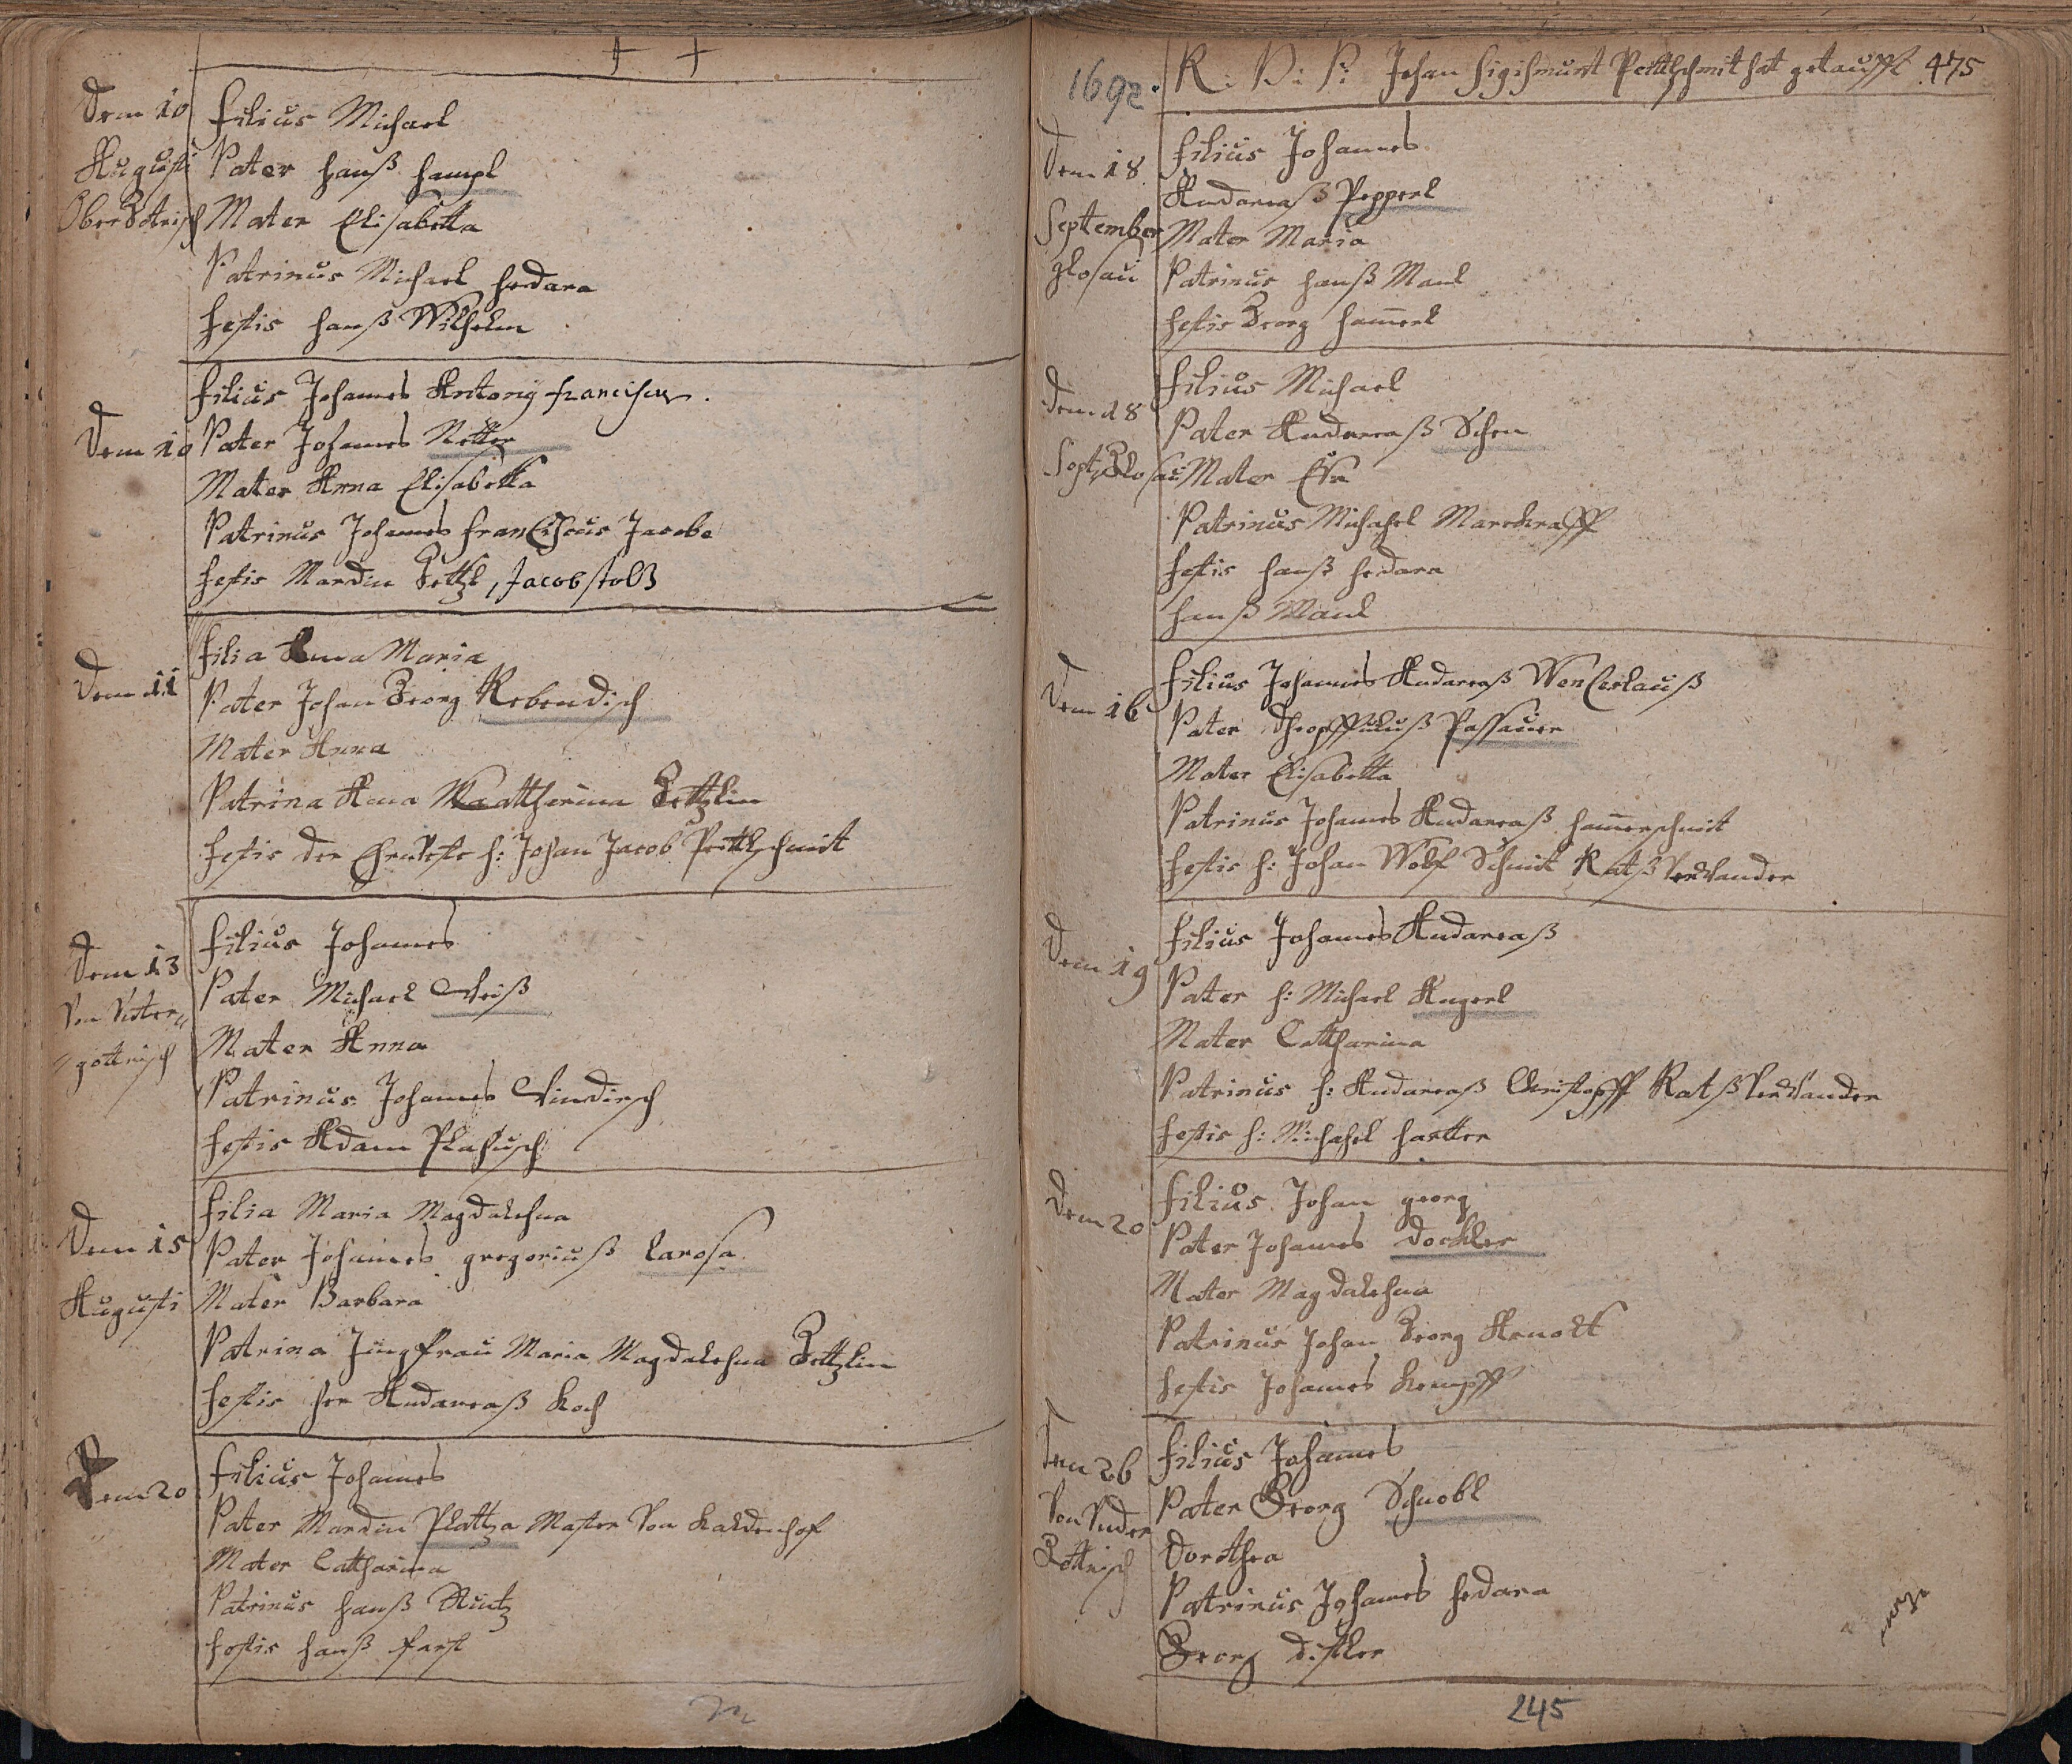 Dem 10
Augusti
Filius Michael
Pater Hanß Hampl
Mater Elisabetta
Patrinus Michael Hedara
Testis Hanß Wilhelm
Dem 10
Filius Johannes Antony Franciscus.
Pater Johannes Netter
Mater Anna Elisabetta
Patrinus Johannes Franciscus Jacobe
Testis Mardin Gottzl, Jacob Stolß
Dem 11
Filia Anna Maria
Pater Johan Georg Rebendisch
Mater Anna
Patrina Anna Gottzlin
Testis der H: Johan Jacob Pettlschmit
Dem 13
Von Unter
gottrisch
Filius Johannes
Pater Michael
Mater Anna
Patrinus Johannes
Testis Adam
Dem 15
Augusti
Filia Maria Magdalehna
Pater Johannes gregoriuß Larosa
Mater Barbara
Patrina Jungfrau Maria Magdalehna Gottzlin
Testis Her Andareaß Koch
Dem 20
Filius Johannes
Pater Mardin Plattza Master Von Kaldenhof
Mater Catharina
Patrinus Hanß
Testis Hanß Farst
1692.
R: D: P: Johan Sigismunt Pettlschmit hat getaufft 475
Dem 18
September
Glosau
Filius Johannes
Andareaß Pepperl
Mater Maria
Patrinus Hanß Maul
Testis Georg Ham̄erl
Dem 18
Sept Glosau
Filius Michael
Pater Andareaß Schen
Mater Efa
Patrinus Michahel Marckraff
Testis Hanß Hedara
Hanß Maul
Dem 16
Filius Johannes Andareaß Wenceslauß
Pater Passauer
Mater Elisabetta
Patrinus Johannes Andareaß Ham̄erschmit
Testis H: Johan Wolf Schmit Ratß Verwander
Dem 19
Filius Johannes Andareaß
Pater H: Michael Angerl
Mater Catharina
Patrinus H: Andareaß Christopff Ratß Verwander
Testis H: Michahel Hartter
Dem 20
Filius Johan georg
Pater Johannes Dockler
Mater Magdalehna
Patrinus Johan Georg Arnolt
Testis Johannes Kempff
Dem 26
Von Under
Gottrisch
Filius Johannes
Pater Georg Schnobl
Dorothea
Patrinus Johannes Hedara
Georg Distler
245